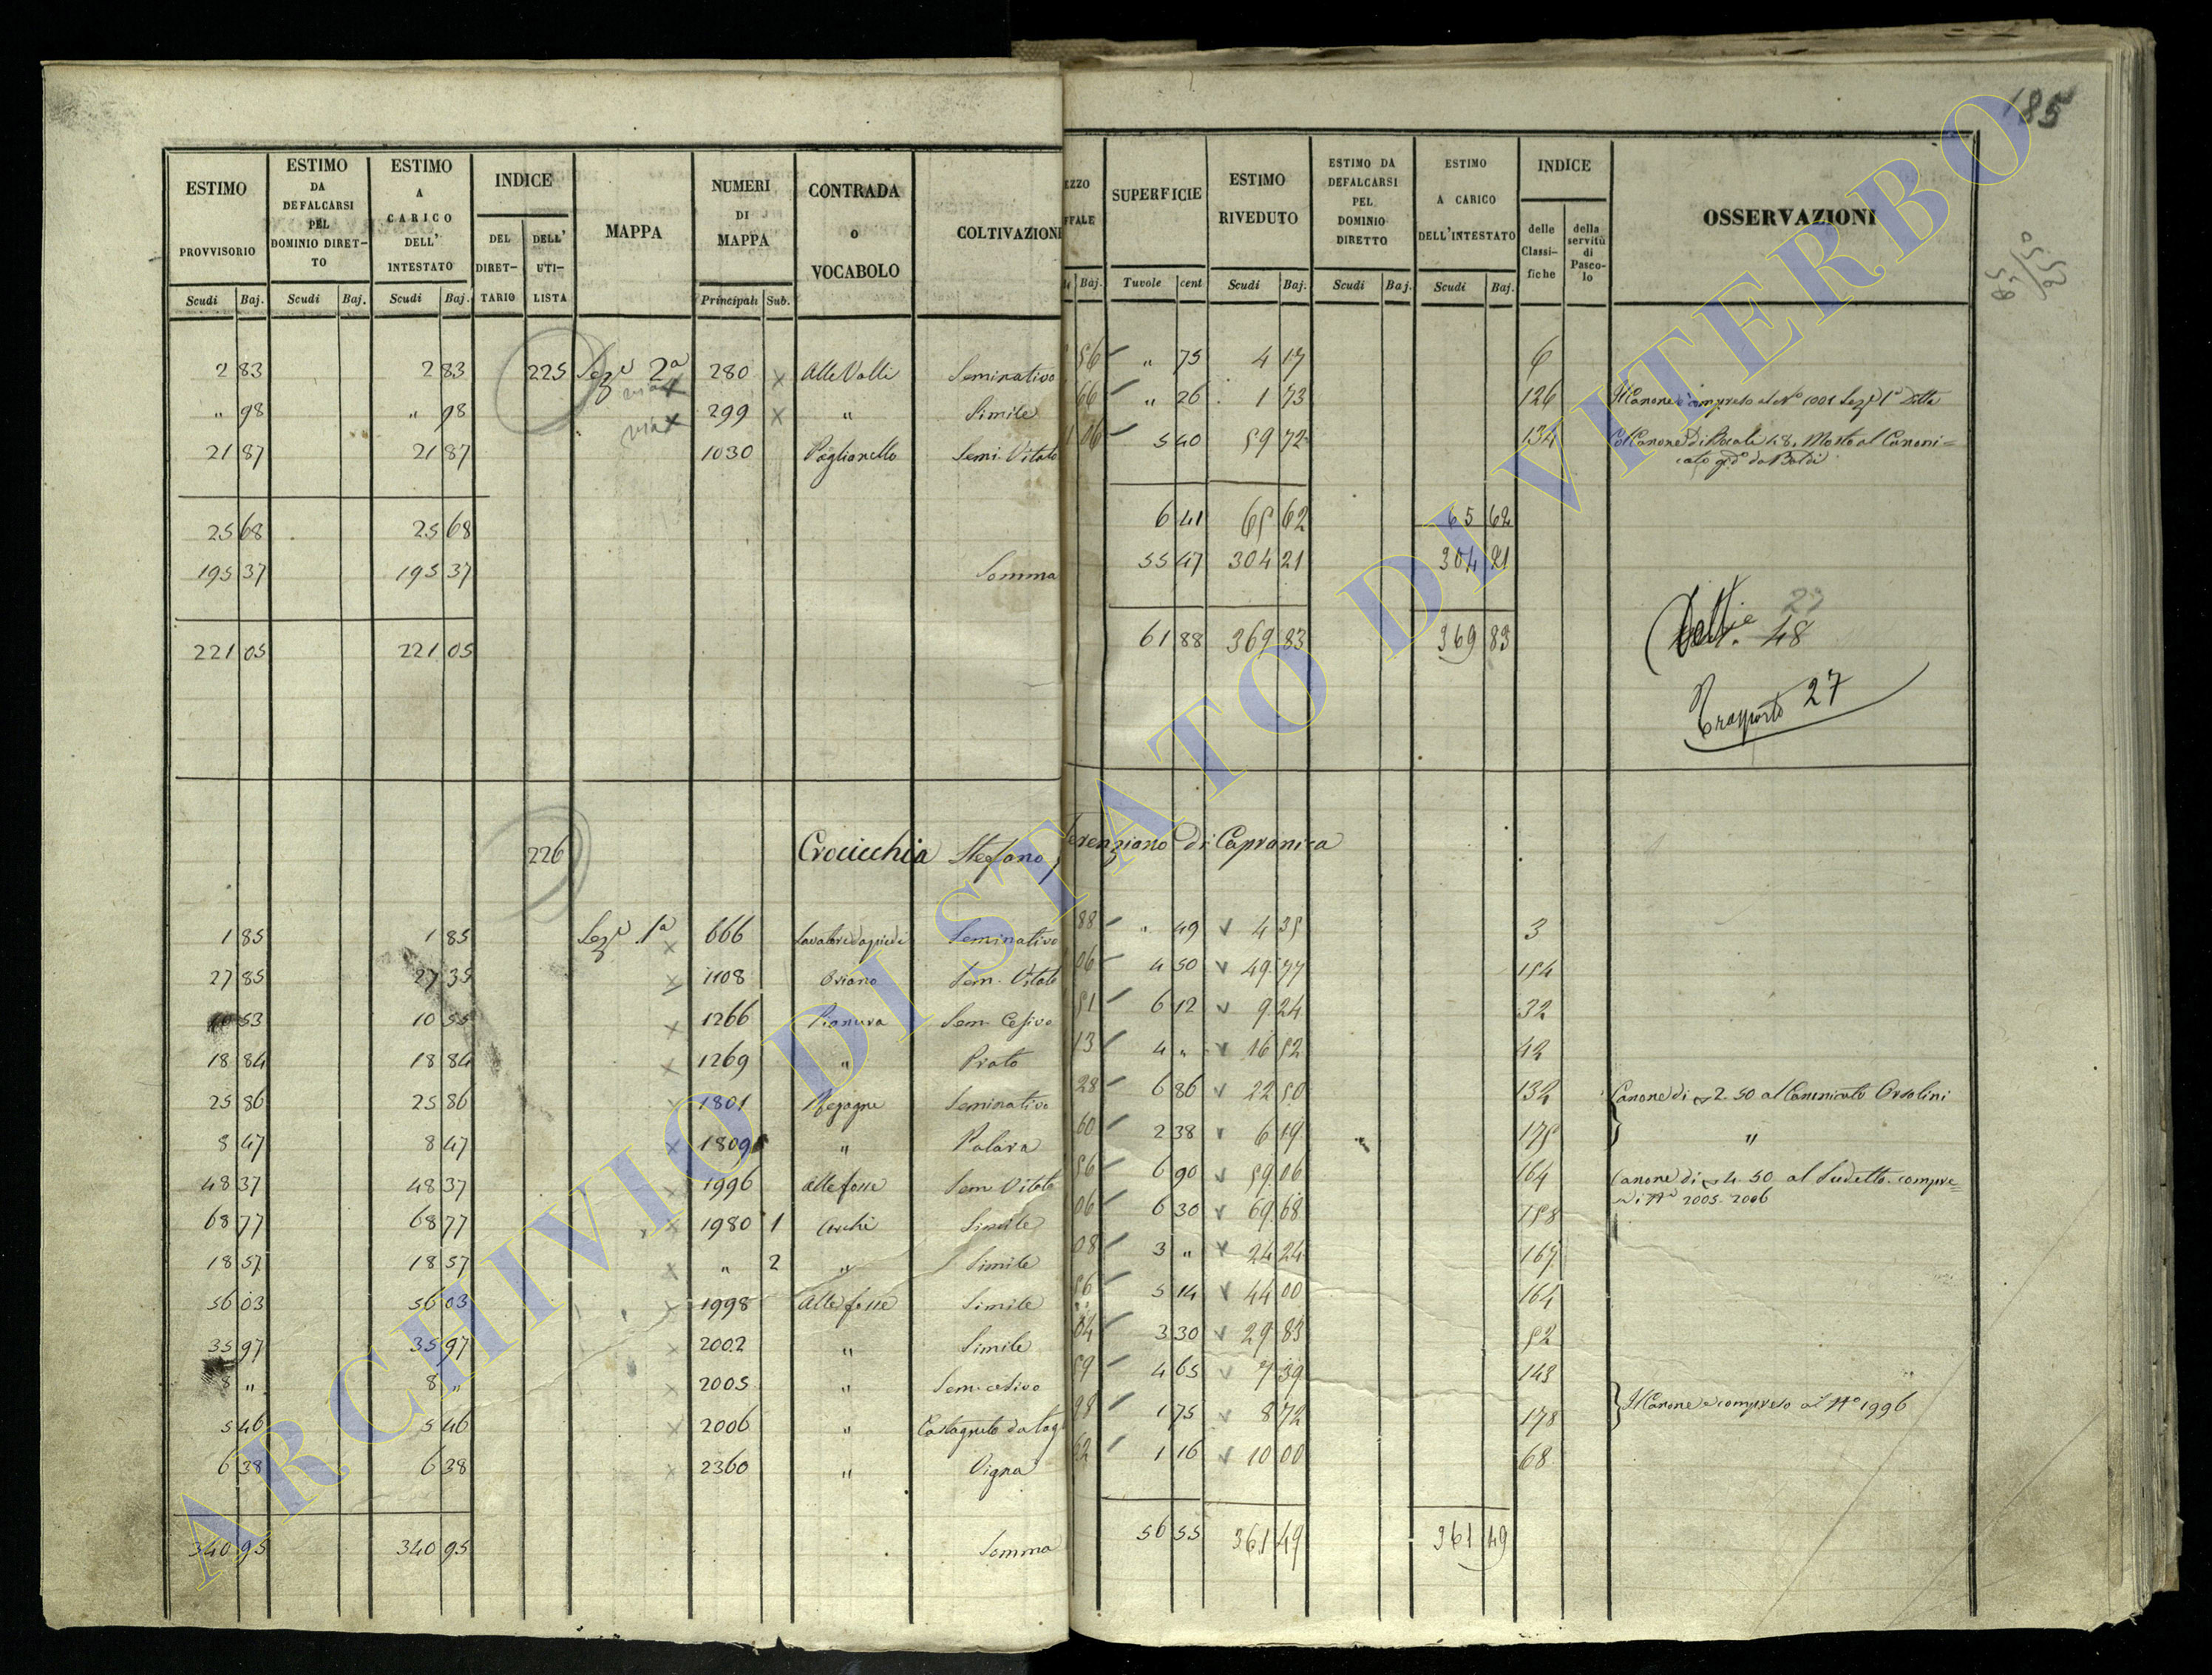 185
ESTIMO PROVVISORIO Scudi Baj.
ESTIMO DA DEFALCARSI PEL DOMINIO DIRET-TO Scudi Baj.
ESTIMO A CARICO DELL' INTESTATO Scudi Baj.
INDICE DEL DIRET-TARIO DELL' UTI-LISTA
MAPPA
NUMERI DI MAPPA Principali Sub.
CONTRADA o VOCABOLO
COLTIVAZIONE
EZZO FFALE Baj.
SUPERFICIE Tavole cent
ESTIMO RIVEDUTO Scudi Baj.
ESTIMO DA DEFALCARSI PEL DOMINIO DIRETTO Scudi Baj.
ESTIMO A CARICO DELL'INTESTATO Scudi Baj.
INDICE delle Classi-fiche della servitù di Pasco-lo
OSSERVAZIONI
2 83 2 83 225 Sez.e 2a 280 x Alle Valli Seminativo 56 " 75 4 17 6
" 98 " 98 299 x " Simile 66 " 26 1 73 126 Il Canone è compreso al No 1001 Sez.e 1a
21 87 21 87 1030 Paglianello Semi. Vitato 06 5 40 59 72 134
25 68 25 68 6 41 65 62 65 62
195 37 195 37 Somma 55 47 304 21 304 21
221 05 221 05 61 88 369 83 369 83
27
48
Trasporto 27
226 Crocicchia Stefano Terenziano di Capranica
1 85 1 85 Sez.e 1a x 666 Seminativo 88 " 49 v 4 35 3
27 85 27 35 x 1108 Oriano Sem. Vitato 06 4 50 v 49 77 154
10 53 10 53 x 1266 Pianura Sem. Cesivo 51 6 12 v 9 24 32
18 84 18 84 x 1269 " Prato 13 4 " v 16 52 42
25 86 25 86 x 1801 Seminativo 28 6 86 v 22 50 132 Canone di 2.50 al Canonicato Orsolini
8 47 8 47 x 1809 " 60 2 38 v 6 19 175 "
48 37 48 37 x 1996 alle fosse Sem Vitato 56 6 90 v 59 06 164 Canone di 4.50 al Sudetto compre=
2005. 2006
68 77 68 77 x 1980 1 Simile 06 6 30 v 69 68 158
18 57 18 57 x " 2 " Simile 08 3 " v 24 24 167
56 03 56 03 x 1998 Alle fosse Simile 56 5 14 v 44 00 164
35 97 35 97 x 2002 " Simile 04 3 30 v 29 83 52
8 " 8 " x 2005 " Sem. cesivo 59 4 65 v 7 39 143
5 46 5 46 x 2006 " Castagneto da tag 98 1 75 v 8 72 178 Il Canone è compreso al No 1996
6 38 6 38 x 2360 " Vigna 62 1 16 v 10 00 68
340 95 340 95 Somma 56 55 361 49 361 49
ARCHIVIO DI STATO DI VITERBO